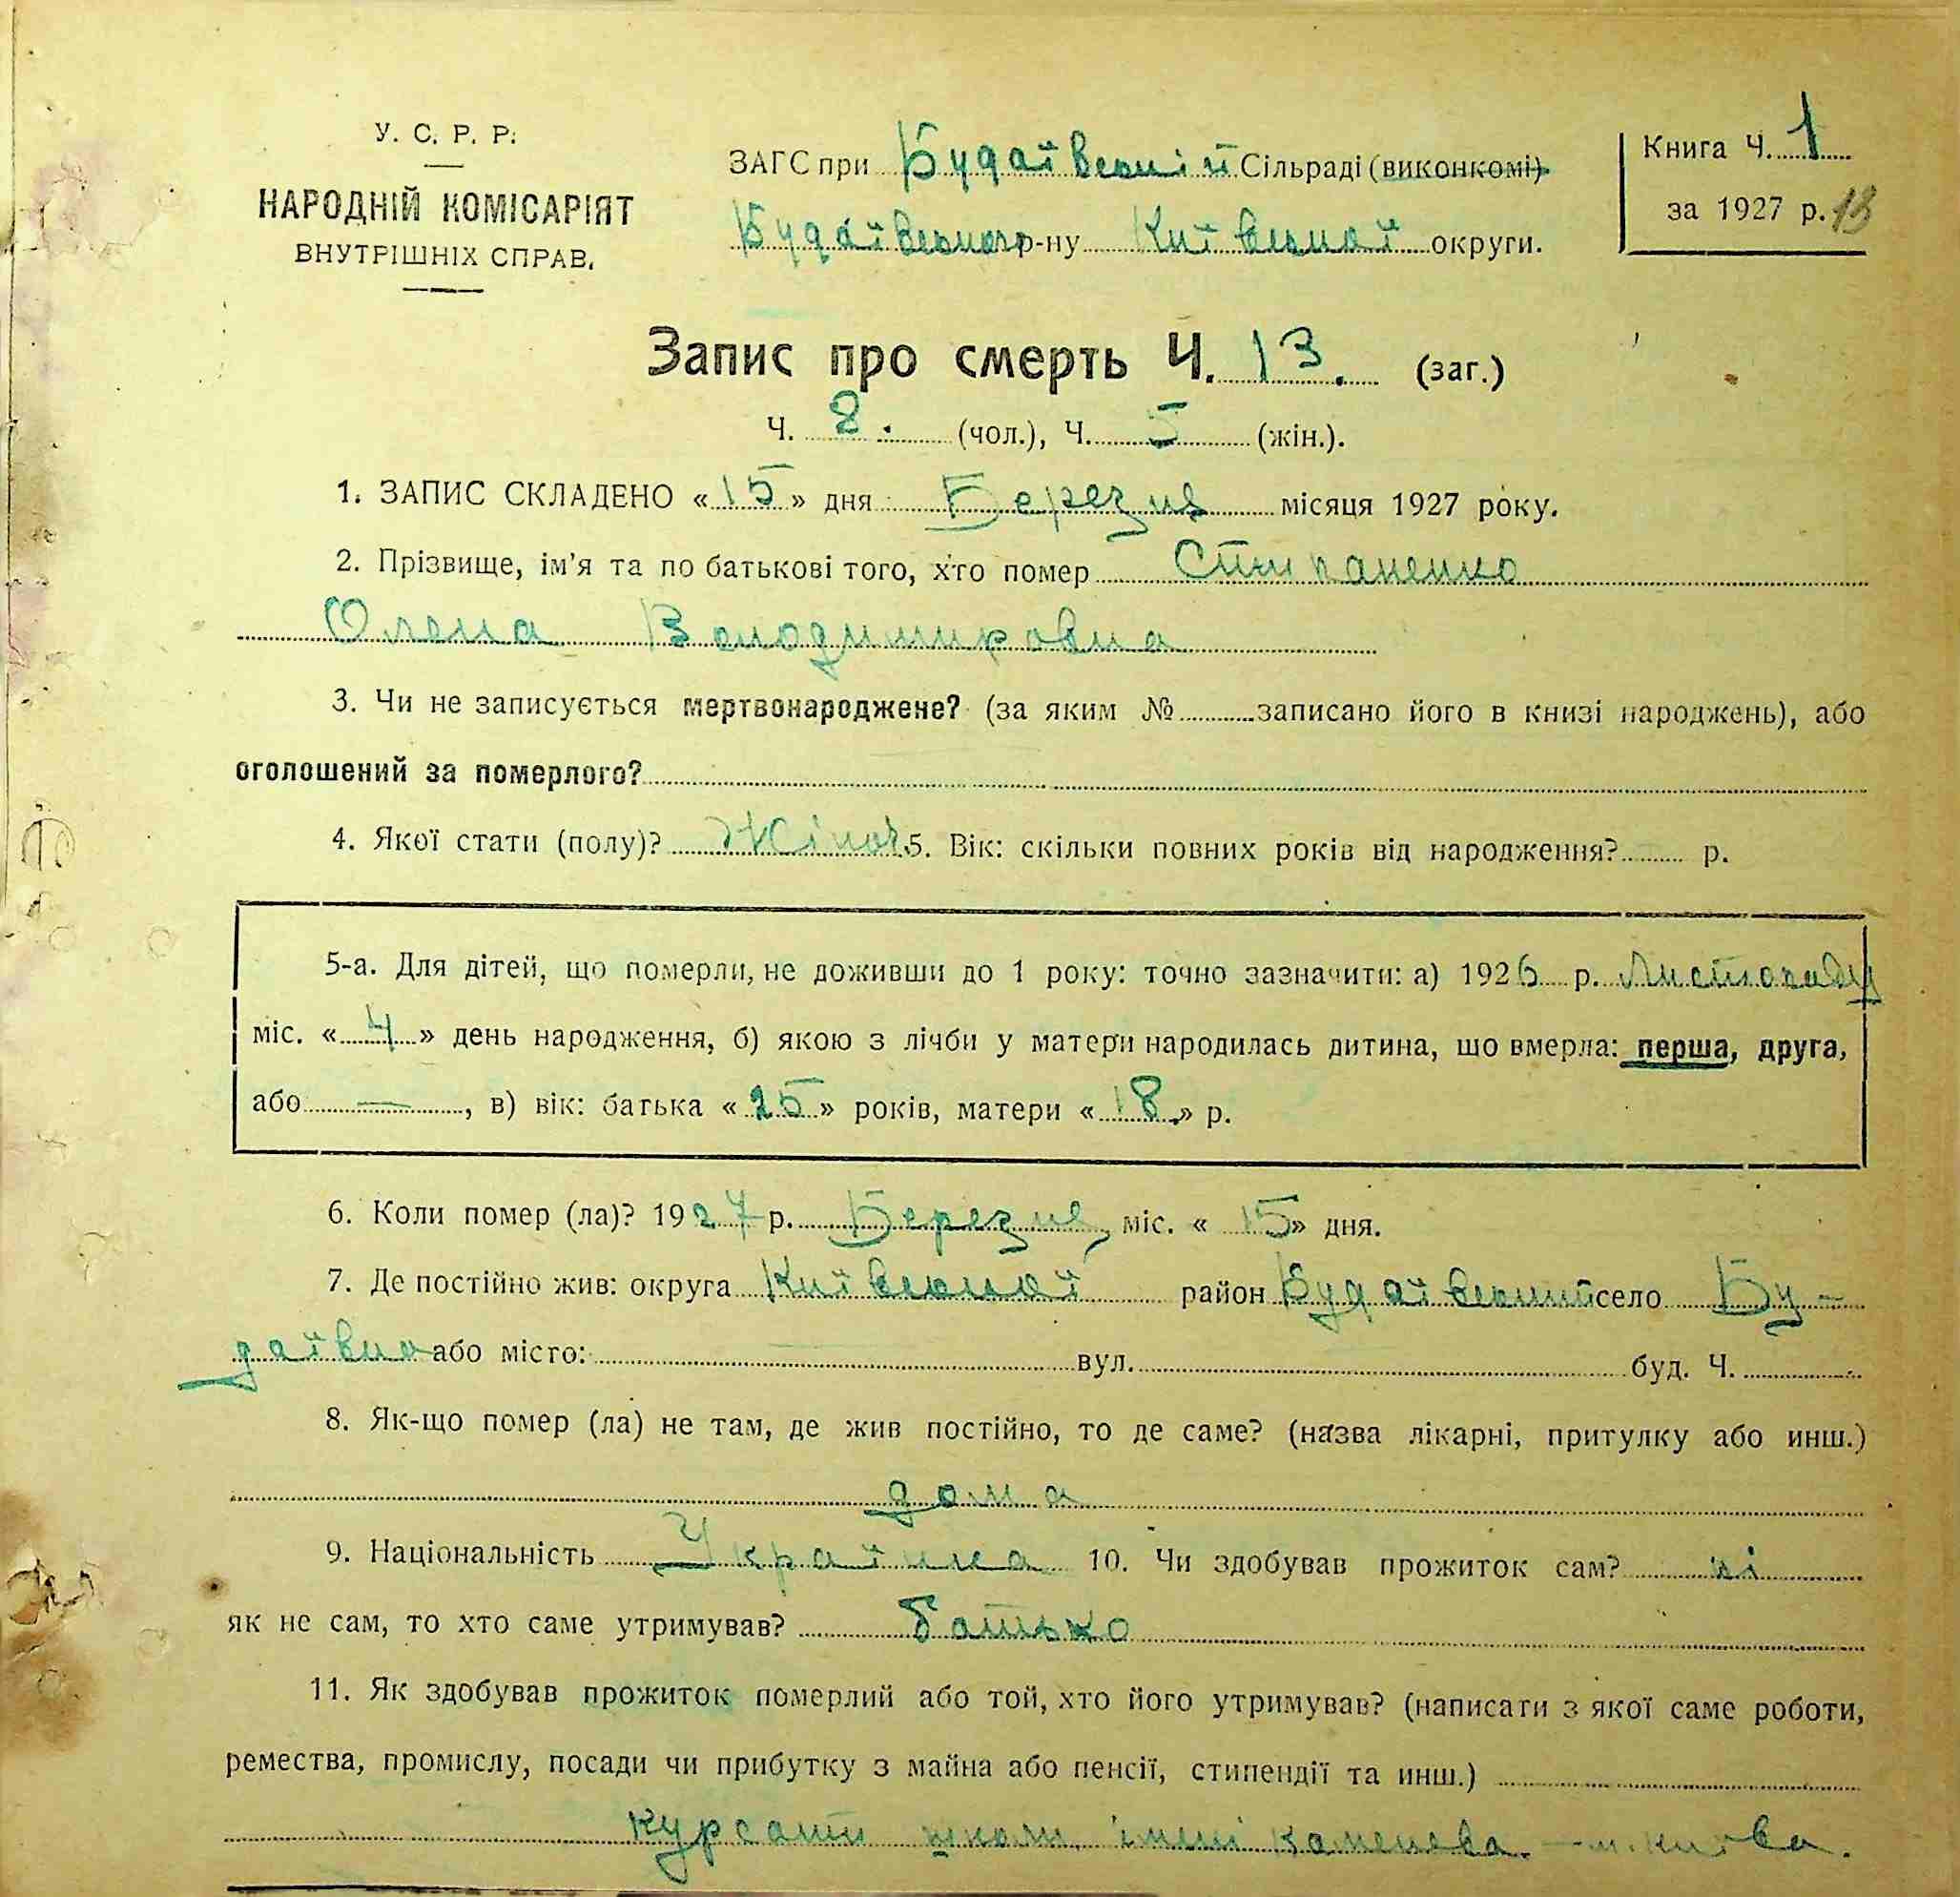 У. С. Р. Р.
НАРОДНІЙ КОМІСАРІЯТ
ВНУТРІШНІХ СПРАВ.
ЗАГС при Будаївській Сільраді (виконкомі)
Будаївського р-ну Київської округи.
Книга Ч. 1
за 1927 р. 13
Запис про смерть Ч. 13. (заг.)
Ч. 8. (чол.), Ч. 5 (жін.).
1. ЗАПИС СКЛАДЕНО «15» дня Березня місяця 1927 року.
2. Прізвище, ім'я та по батькові того, хто помер
Олена Володимировна
3. Чи не записується мертвонароджене? (за яким № записано його в книзі народжень), або
оголошений за померлого?
4. Якої стати (полу)? Жіноч 5. Вік: скільки повних років від народження? р.
5-а. Для дітей, що померли, не доживши до 1 року: точно зазначити: а) 1926 р. Листопаду
міс. «4» день народження, б) якою з лічби у матери народилась дитина, що вмерла: перша, друга,
або —, в) вік: батька «25» років, матери «18» р.
6. Коли помер (ла)? 1927 р. Березня міс. «15» дня.
7. Де постійно жив: округа Київської район Будаївський село Бу-
даївка або місто: вул. буд. Ч.
8. Як-що помер (ла) не там, де жив постійно, то де саме? (назва лікарні, притулку або инш.)
дома
9. Національність Україна 10. Чи здобував прожиток сам? ні
як не сам, то хто саме утримував? батько
11. Як здобував прожиток померлий або той, хто його утримував? (написати з якої саме роботи,
ремества, промислу, посади чи прибутку з майна або пенсії, стипендії та инш.)
курсант школи імені Каменева. — м. Київа.